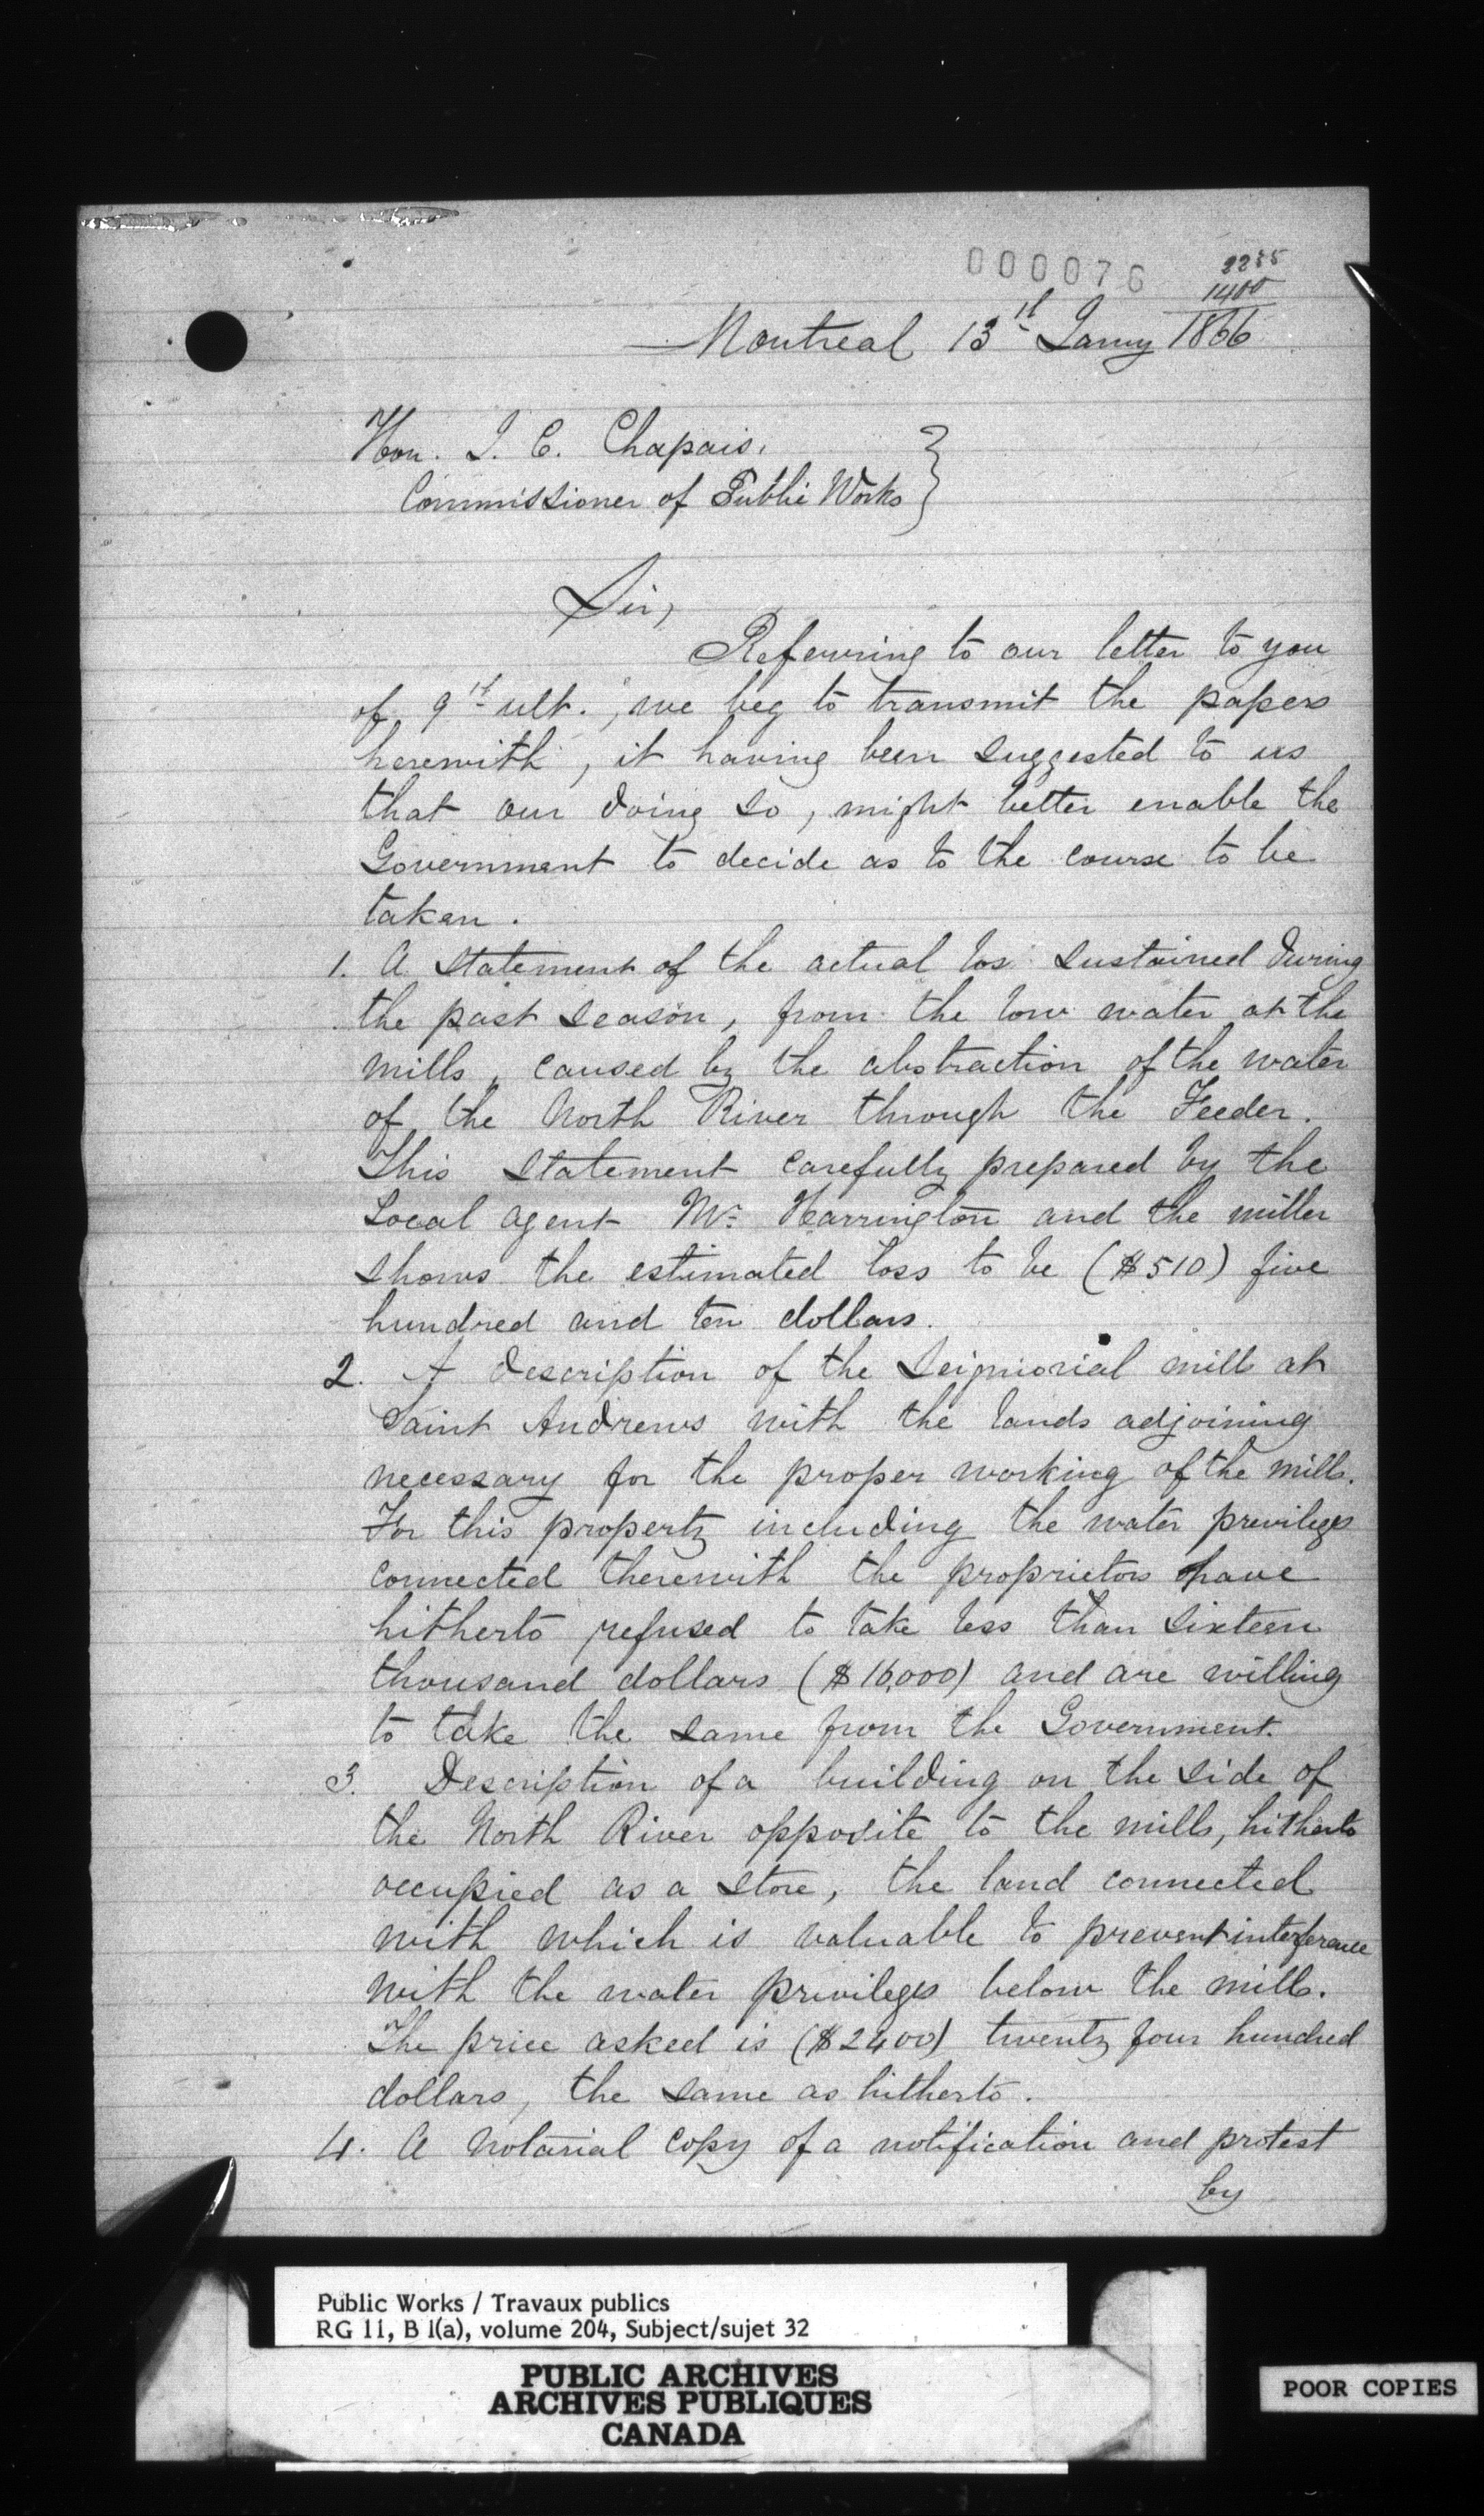 000076
2285
1400
Montreal 13th Jany 1866
Hon. J. C. Chapais,
Commissioner of Public Works
Sir,
Referring to our letter to you
of 9th ult., we beg to transmit the papers
herewith, it having been suggested to us
that our doing so, might better enable the
Government to decide as to the course to be
taken.
1. A statement of the actual loss sustained during
the past season, from the low water at the
mills, caused by the abstraction of the water
of the North River through the Feeder.
This statement carefully prepared by the
Local agent Mr. Harrington and the miller
shows the estimated loss to be ($510) five
hundred and ten dollars.
2. A description of the Seigniorial mills at
Saint Andrews with the lands adjoining
necessary for the proper working of the mills.
For this property including the water privileges
connected therewith the proprietors have
hitherto refused to take less than sixteen
thousand dollars ($16,000) and are willing
to take the same from the Government.
3. Description of a building on the side of
the North River opposite to the mills, hitherto
occupied as a store, the land connected
with which is valuable to prevent interference
with the water privileges below the mills.
The price asked is ($2400) twenty four hundred
dollars, the same as hitherto.
4. A Notarial copy of a notification and protest
by
Public Works / Travaux publics
RG 11, B 1(a), volume 204, Subject/sujet 32
PUBLIC ARCHIVES
ARCHIVES PUBLIQUES
CANADA
POOR COPIES